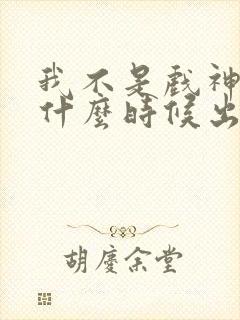 我不是戲神
什麼時候出
胡慶余堂